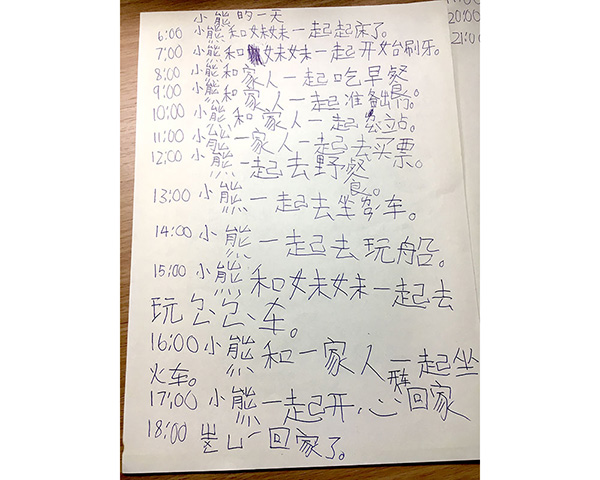 小熊的一天
6:00 小熊和妹妹一起起床了。
7:00 小熊和妹妹一起开始刷牙。
8:00 小熊和家人一起吃早餐。
9:00 小熊和家人一起准备出行。
10:00 小熊和家人一起 立站。
11:00 小熊一家人一起去买票。
12:00 小熊一起去野餐。
13:00 小熊一起去坐 车。
14:00 小熊一起去玩船。
15:00 小熊和妹妹一起去
玩 车。
16:00 小熊和一家人一起坐
火车。
17:00 小熊一起开心回家
18:00 一回家了。
20:00
21:00